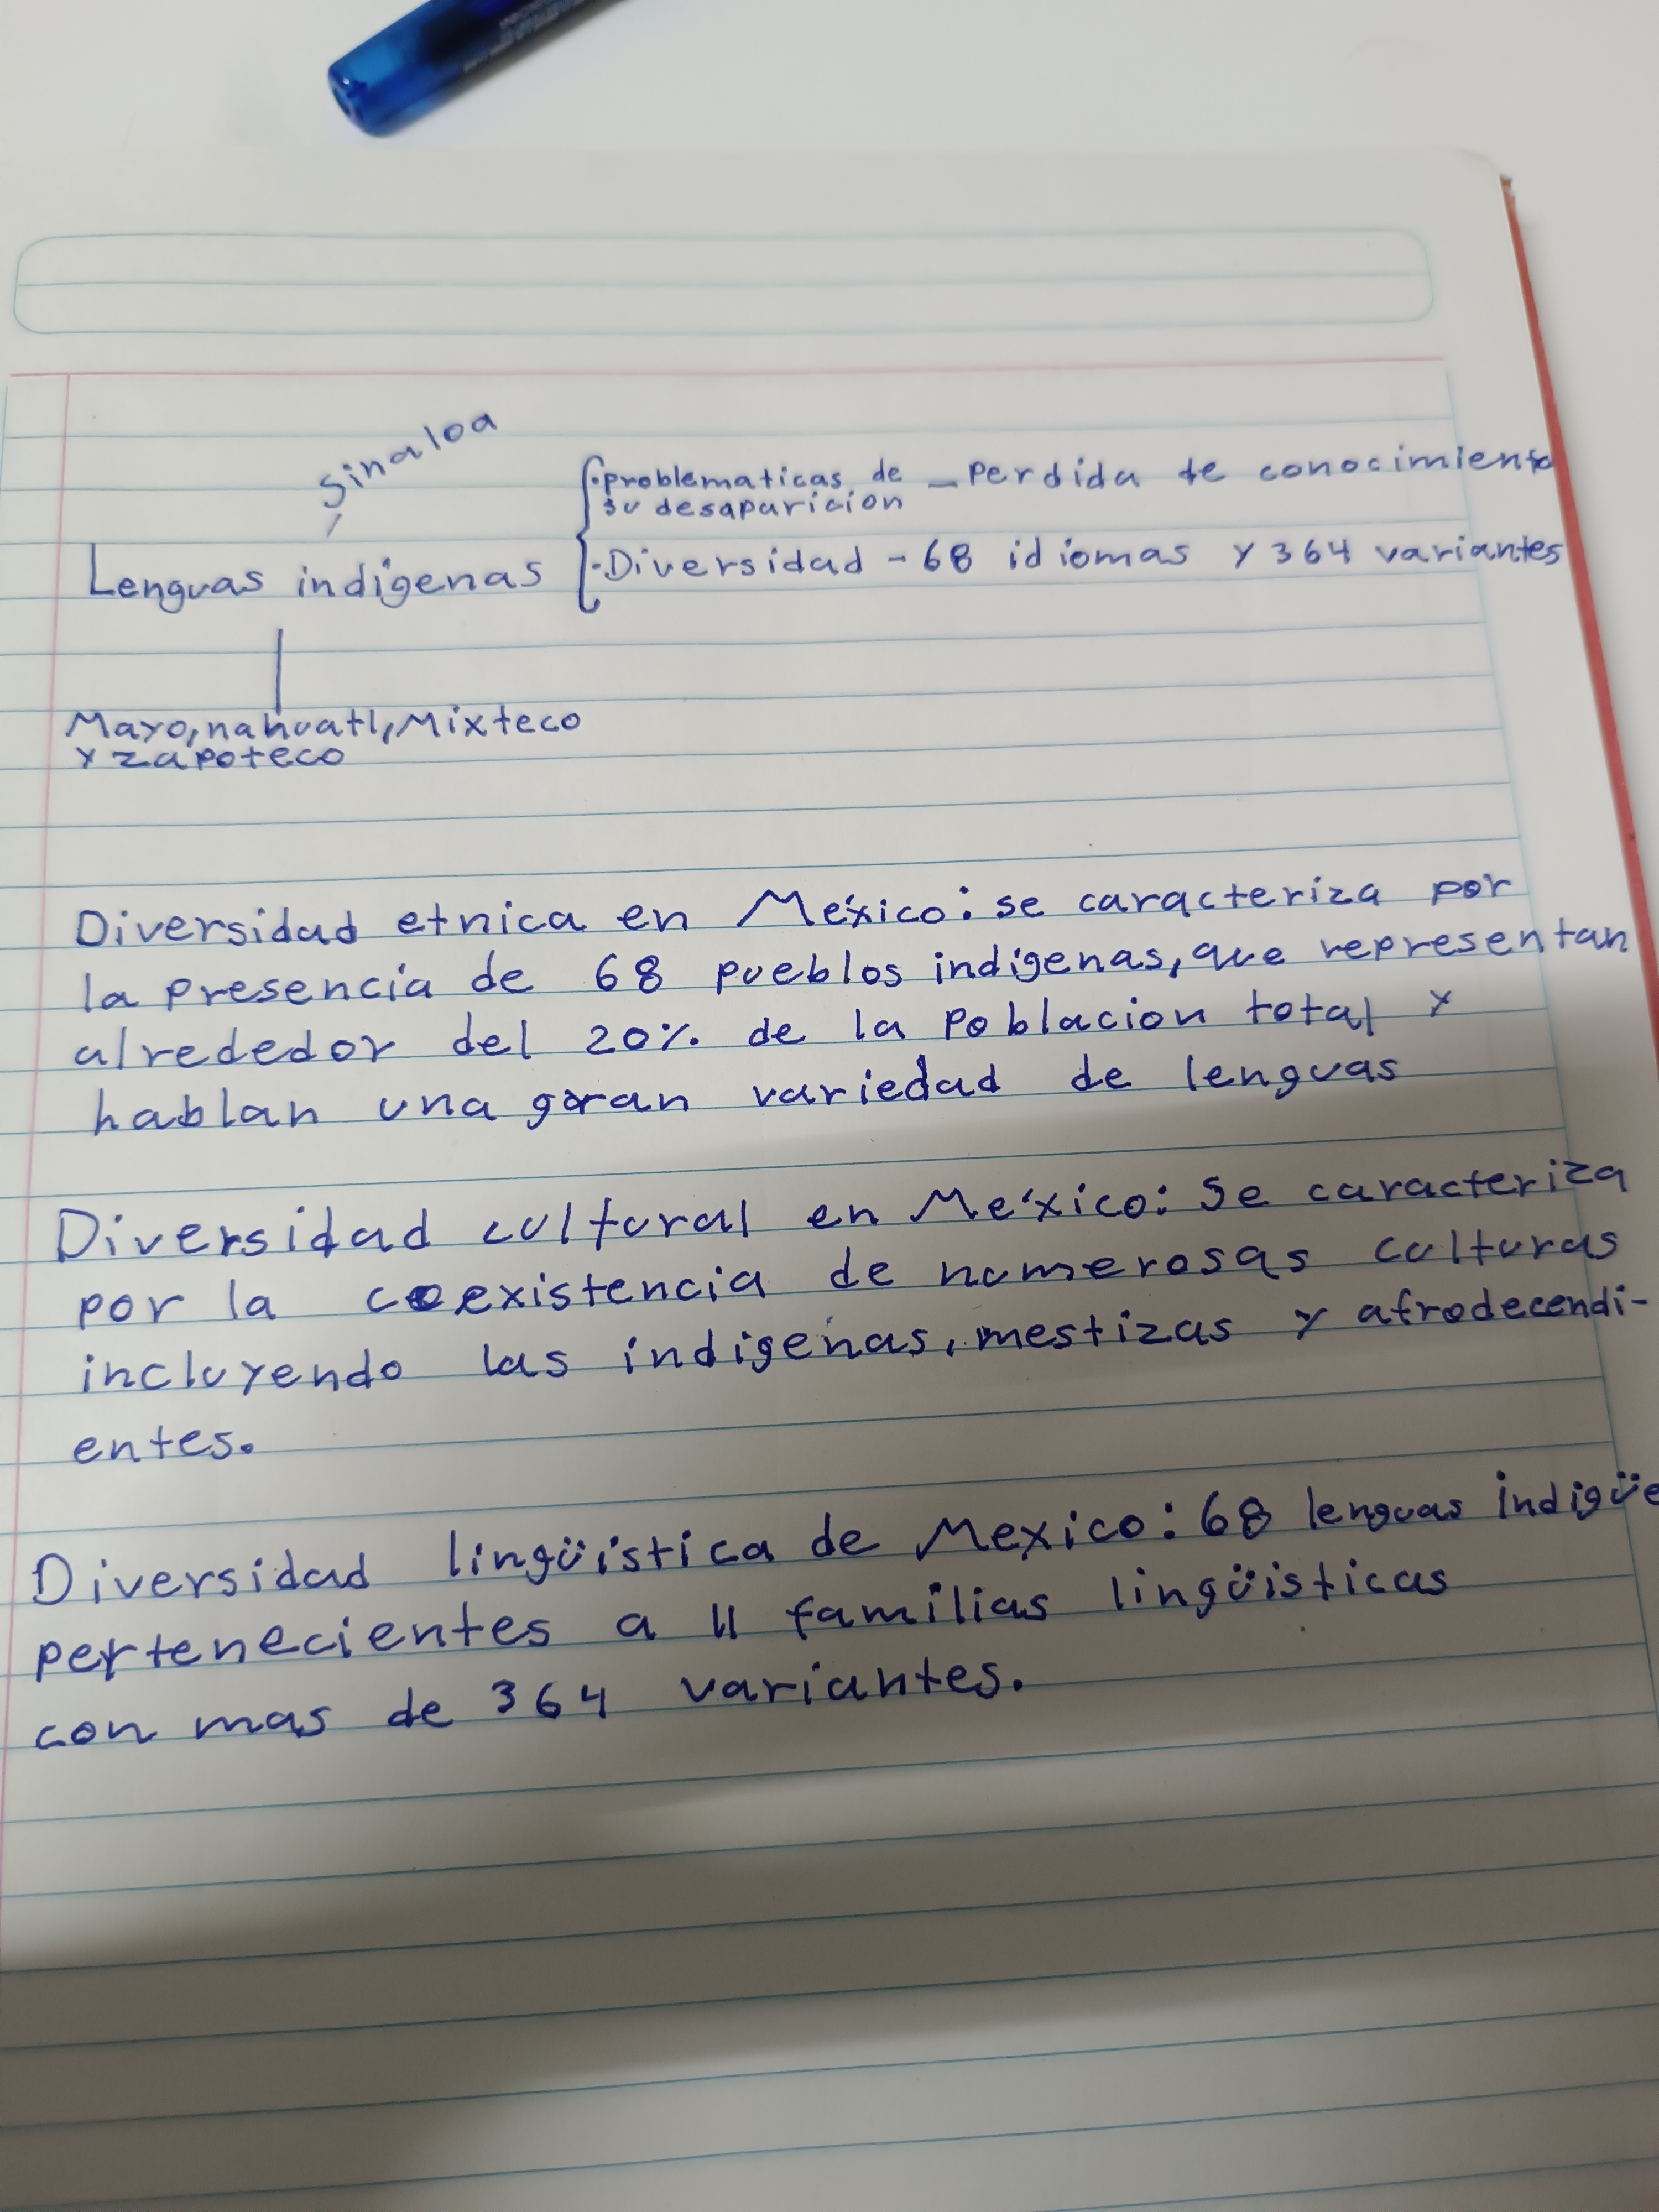 Sinaloa
·problematicas de
su desaparicion
- perdida de conocimiento
Lenguas indigenas
·Diversidad - 68 idiomas y 364 variantes
Mayo, nahuatl, Mixteco
y zapoteco
Diversidad etnica en México: se caracteriza por
la presencia de 68 pueblos indigenas, que representan
alrededor del 20% de la poblacion total y
hablan una gran variedad de lenguas
Diversidad cultural en México: Se caracteriza
por la coexistencia de numerosas culturas
incluyendo las indigenas, mestizas y afrodecendi-
entes.
Diversidad lingüistica de Mexico: 68 lenguas indigüe
pertenecientes a 11 familias lingüisticas
con mas de 364 variantes.